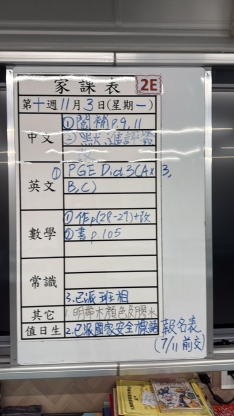 家課表 2E
第十週11月3日(星期一)
中文
①閱補 p.9, 11
②
英文
① PGE Dict 3(Ax 3,
B,C)
數學
①作p(28-29)+改
②書p.105
常識
3.已派班相
其它
1.明帶木顏色及膠水
值日生
2.已派國家安全 報名表
(7/11前交)